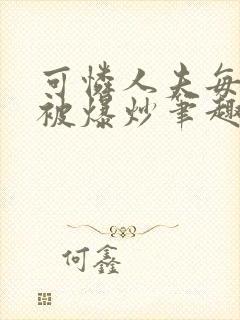 可怜人夫每
被爆炒笔趣
何鑫